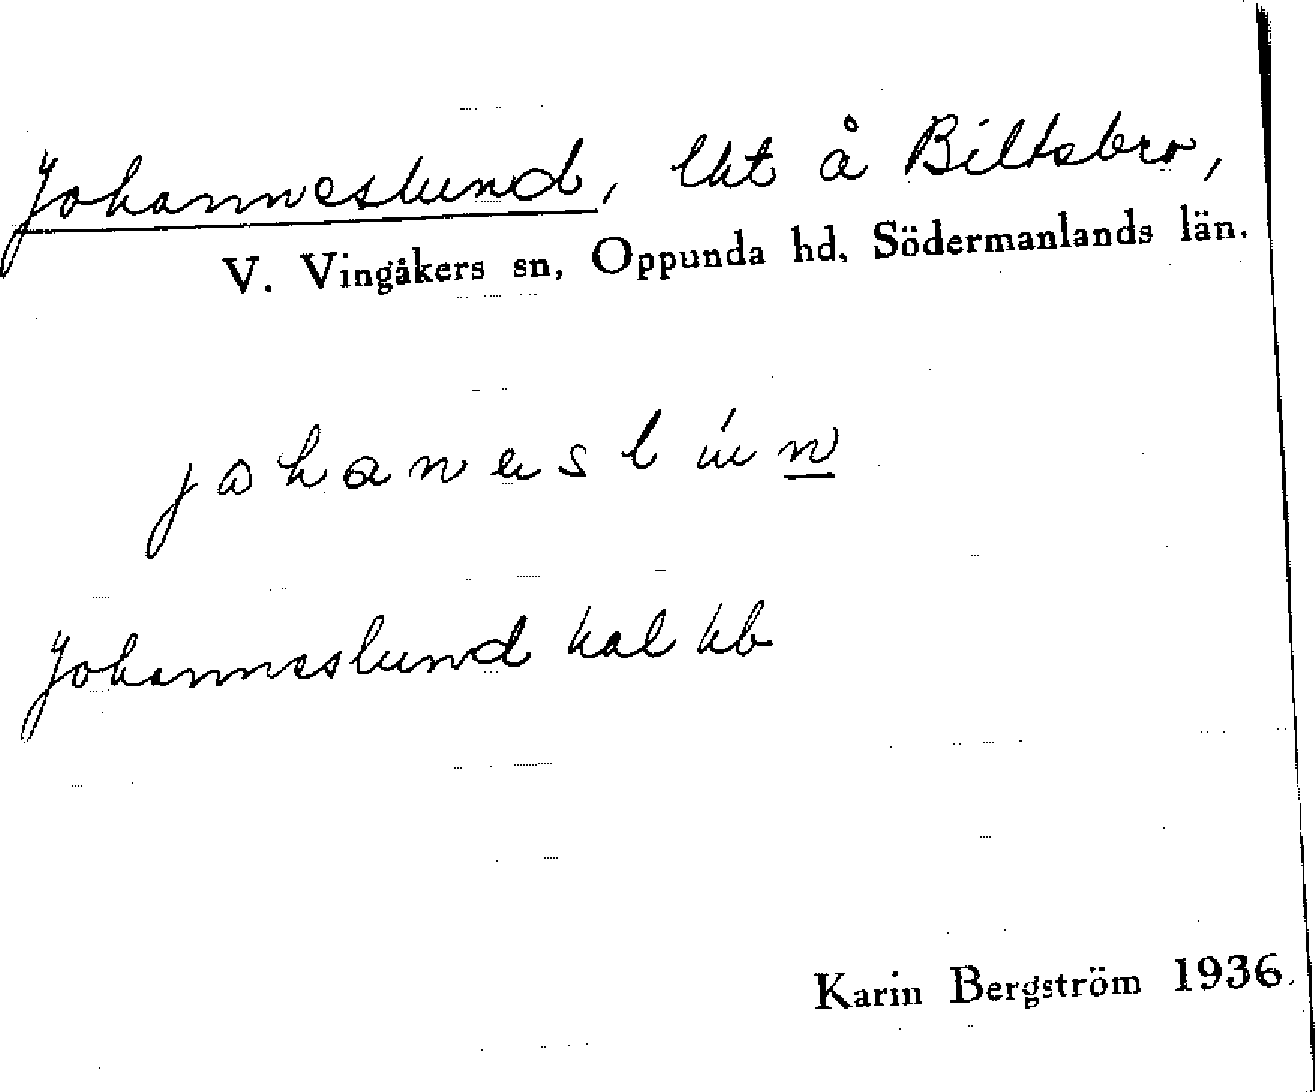 Johanneslund, lht å Biltsbro,
V. Vingåkers sn, Oppunda hd, Södermanlands län.
Johanneslund hal kb
Karin Bergström 1936.